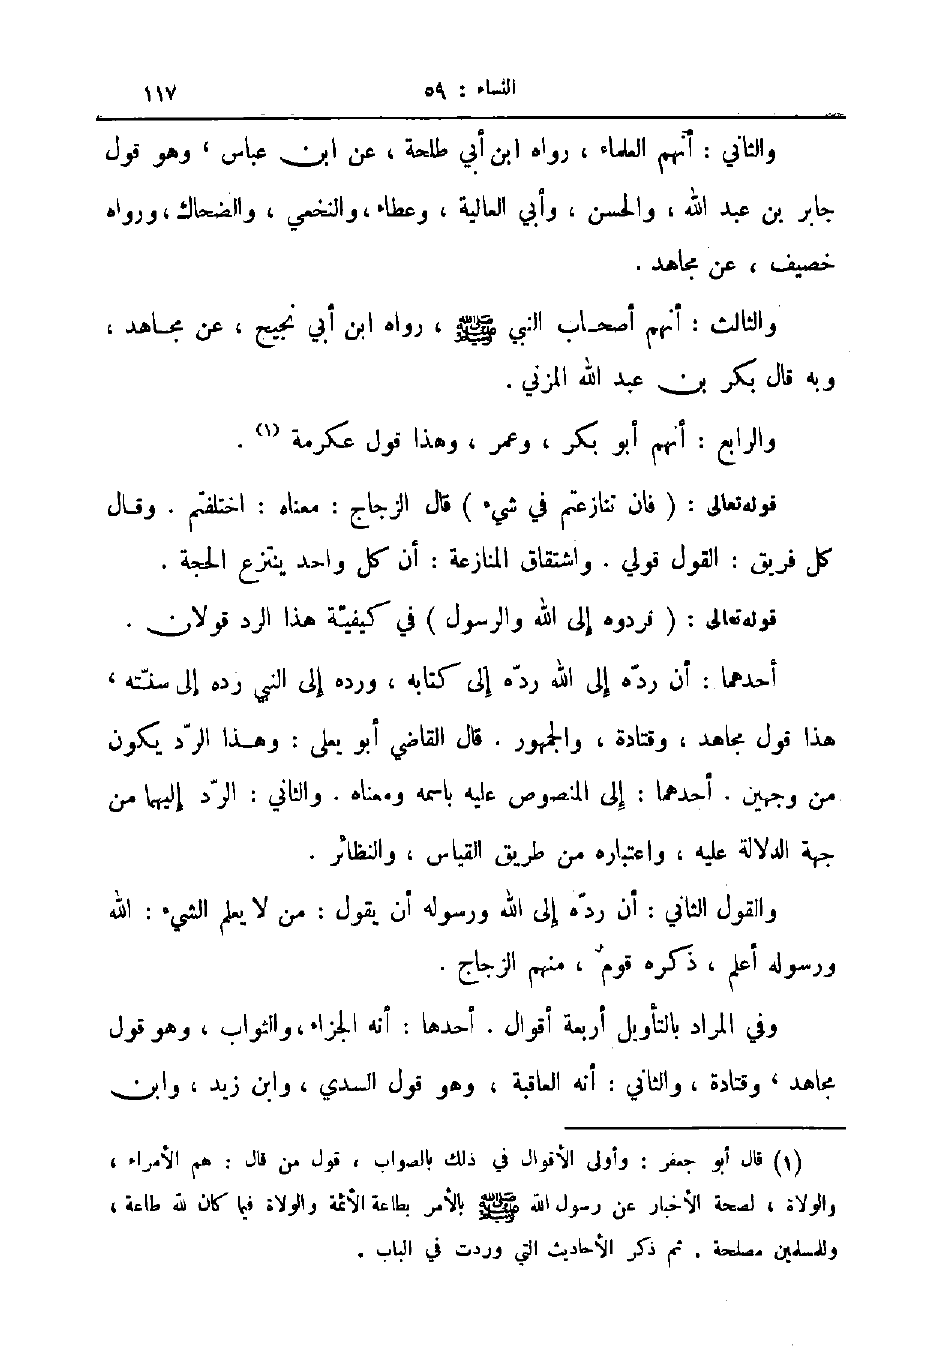 النساء : ٥٩ ١١٧
والثاني : أنهم العلماء ، رواه ابن أبي طلحة ، عن ابن عباس ، وهو قول
جابر بن عبد الله ، والحسن ، وأبي العالية ، وعطاء ، والنخعي ، والضحاك ، ورواه
خصيف ، عن مجاهد .
والثالث : أنهم أصحاب النبي ﷺ ، رواه ابن أبي نجيح ، عن مجاهد ،
وبه قال بكر بن عبد الله المزني .
والرابع : أنهم أبو بكر ، وعمر ، وهذا قول عكرمة (١) .
قوله تعالى : ( فان تنازعتم في شيء ) قال الزجاج : معناه : اختلفتم . وقال
كل فريق : القول قولي . واشتقاق المنازعة : أن كل واحد ينتزع الحجة .
قوله تعالى : ( فردوه إلى الله والرسول ) في كيفيّة هذا الرد قولان .
أحدهما : أن ردّه إلى الله ردّه إلى كتابه ، ورده إلى النبي رده إلى سنّته ،
هذا قول مجاهد ، وقتادة ، والجمهور . قال القاضي أبو يعلى : وهذا الردّ يكون
من وجهين . أحدهما : إلى المنصوص عليه باسمه ومعناه . والثاني : الردّ إليهما من
جهة الدلالة عليه ، واعتباره من طريق القياس ، والنظائر .
والقول الثاني : أن ردّه إلى الله ورسوله أن يقول : من لا يعلم الشيء : الله
ورسوله أعلم ، ذكره قومٌ ، منهم الزجاج .
وفي المراد بالتأويل أربعة أقوال . أحدها : أنه الجزاء ، والثواب ، وهو قول
مجاهد ، وقتادة ، والثاني : أنه العاقبة ، وهو قول السدي ، وابن زيد ، وابن
(١) قال أبو جعفر : وأولى الأقوال في ذلك بالصواب ، قول من قال : هم الأمراء ،
والولاة ، لصحة الأخبار عن رسول الله ﷺ بالأمر بطاعة الأئمة والولاة فيما كان لله طاعة ،
وللمسلمين مصلحة . ثم ذكر الأحاديث التي وردت في الباب .